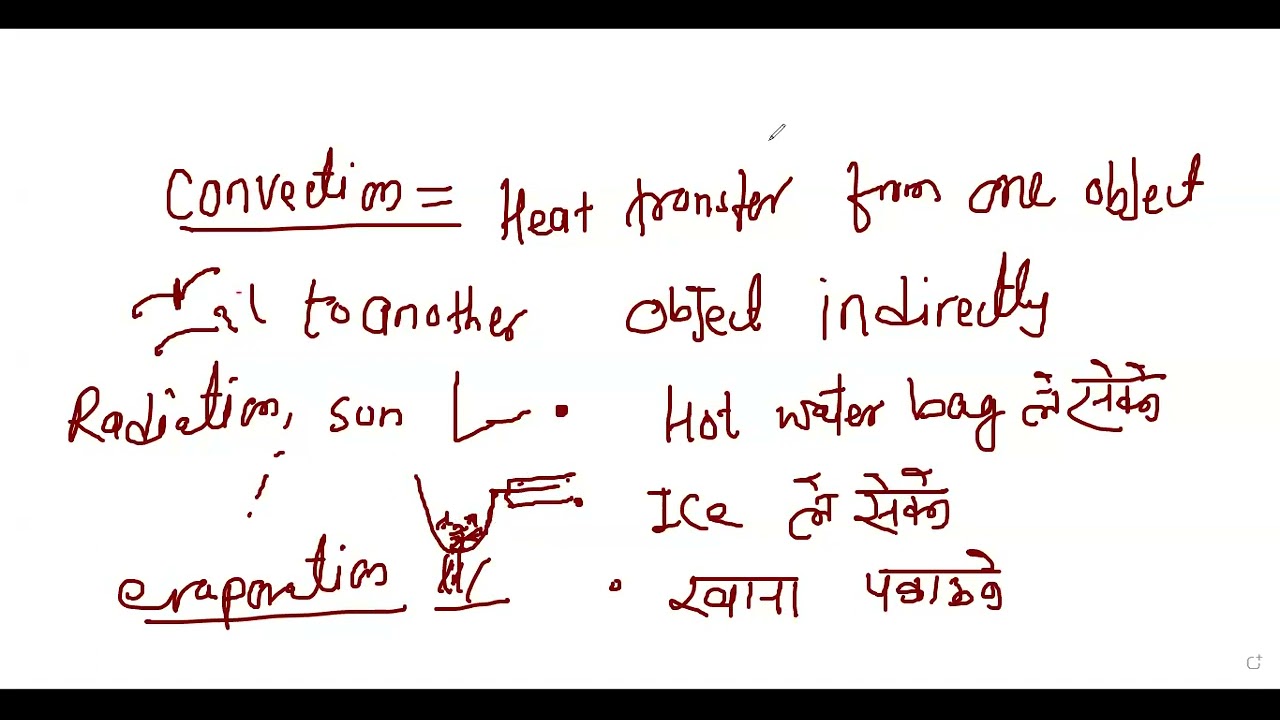 Convection = Heat transfer from one object
to another object indirectly
Radiation, sun • Hot water bag ले सेकने
ICe ले सेकने
evaporation • खाना पकाउने